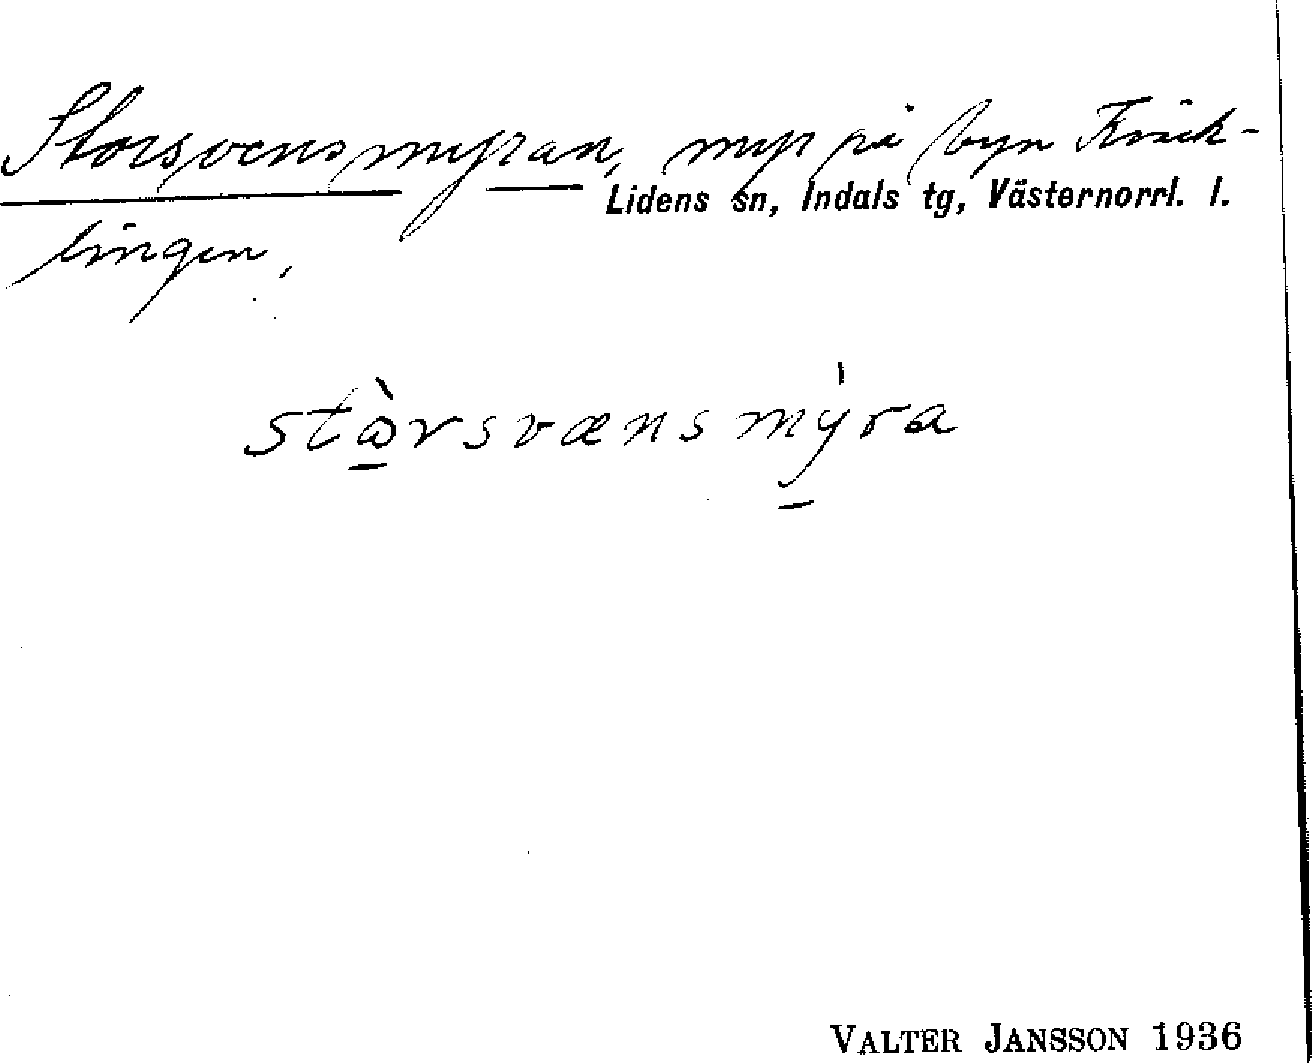 Storsvensmyran, myr på byn Kväck-
Lidens sn, Indals tg, Västernorrl. l.
lingen.
stàrsvænsmy̍ra
VALTER JANSSON 1936